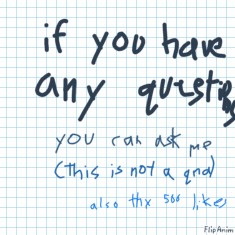 if you have
any questions
you can ask me
(this is not a qna)
also thx 500 likes
FlipAnim